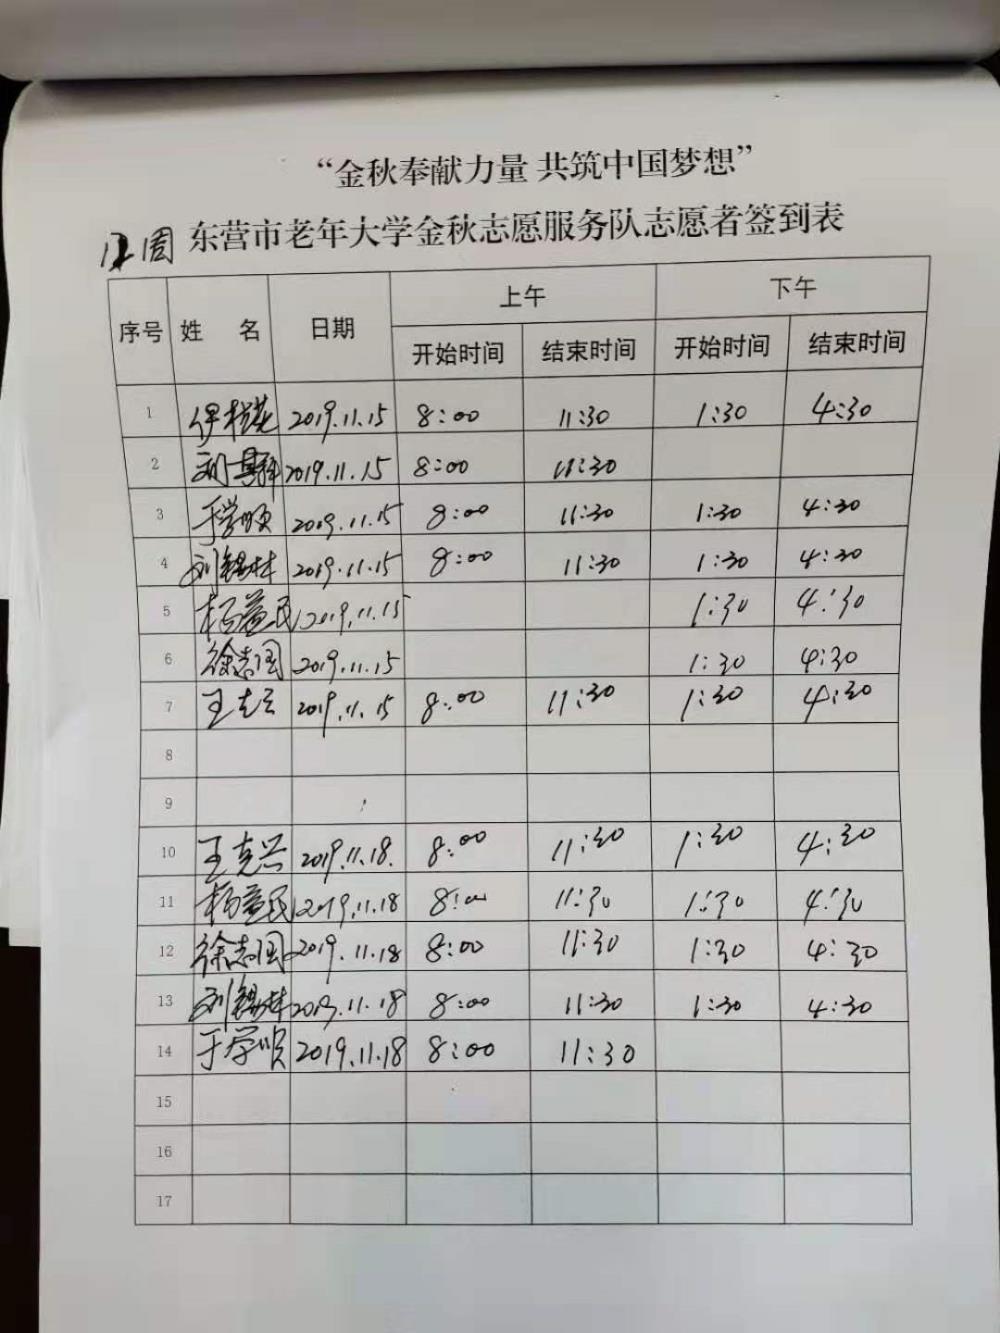 “金秋奉献力量 共筑中国梦想”
12周 东营市老年大学金秋志愿服务队志愿者签到表
序号 姓 名 日期 上午 下午
开始时间 结束时间 开始时间 结束时间
1 2019.11.15 8:00 11:30 1:30 4:30
2 2019.11.15 8:00 11:30
3 于学顺 2019.11.15 8:00 11:30 1:30 4:30
4 刘锡林 2019.11.15 8:00 11:30 1:30 4:30
5 杨益民 2019.11.15 1:30 4:30
6 徐志国 2019.11.15 1:30 4:30
7 王克兴 2019.11.15 8:00 11:30 1:30 4:30
8
9
10 王克兴 2019.11.18. 8:00 11:30 1:30 4:30
11 杨益民 2019.11.18 8:00 11:30 1:30 4:30
12 徐志国 2019.11.18 8:00 11:30 1:30 4:30
13 刘锡林 2019.11.18 8:00 11:30 1:30 4:30
14 于学顺 2019.11.18 8:00 11:30
15
16
17